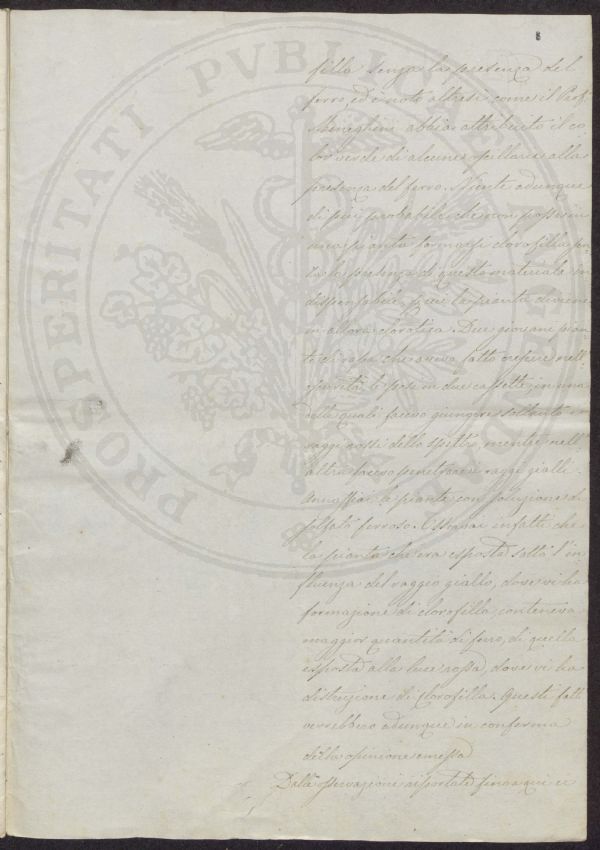 8
filla senza la presenza del
ferro, ed è noto altresì come il Prof.
Meneghini abbia attribuito il co-
lor verde di alcune opillarie alla
presenza del ferro. Niente adunque
di più probabile che non possa in
una pianta formarsi clorofilla sen-
za la presenza di questo materiale in
dispensabile, e che la pianta divenga
in allora clorotica. Due giovani pian
te di rosa che avevo fatto crescere nell'
oscurità le posi in due cassette, in una
delle quali facevo giungere soltanto i
raggi rossi dello spettro, mentre nell'
altra facevo penetrare i raggi gialli.
Annaffiai le piante con soluzione di
solfato ferroso. Osservai infatti che
la pianta che era esposta sotto l'in
fluenza del raggio giallo, dove vi ha
formazione di clorofilla, conteneva
maggior quantità di ferro, di quella
esposta alla luce rossa, dove vi ha
distruzione di clorofilla. Questi fatti
verrebbero adunque in conferma
della opinione emessa
Dalle osservazioni riportate finora qui ci
PROSPERITATI PVBLICAE AVGENDAE